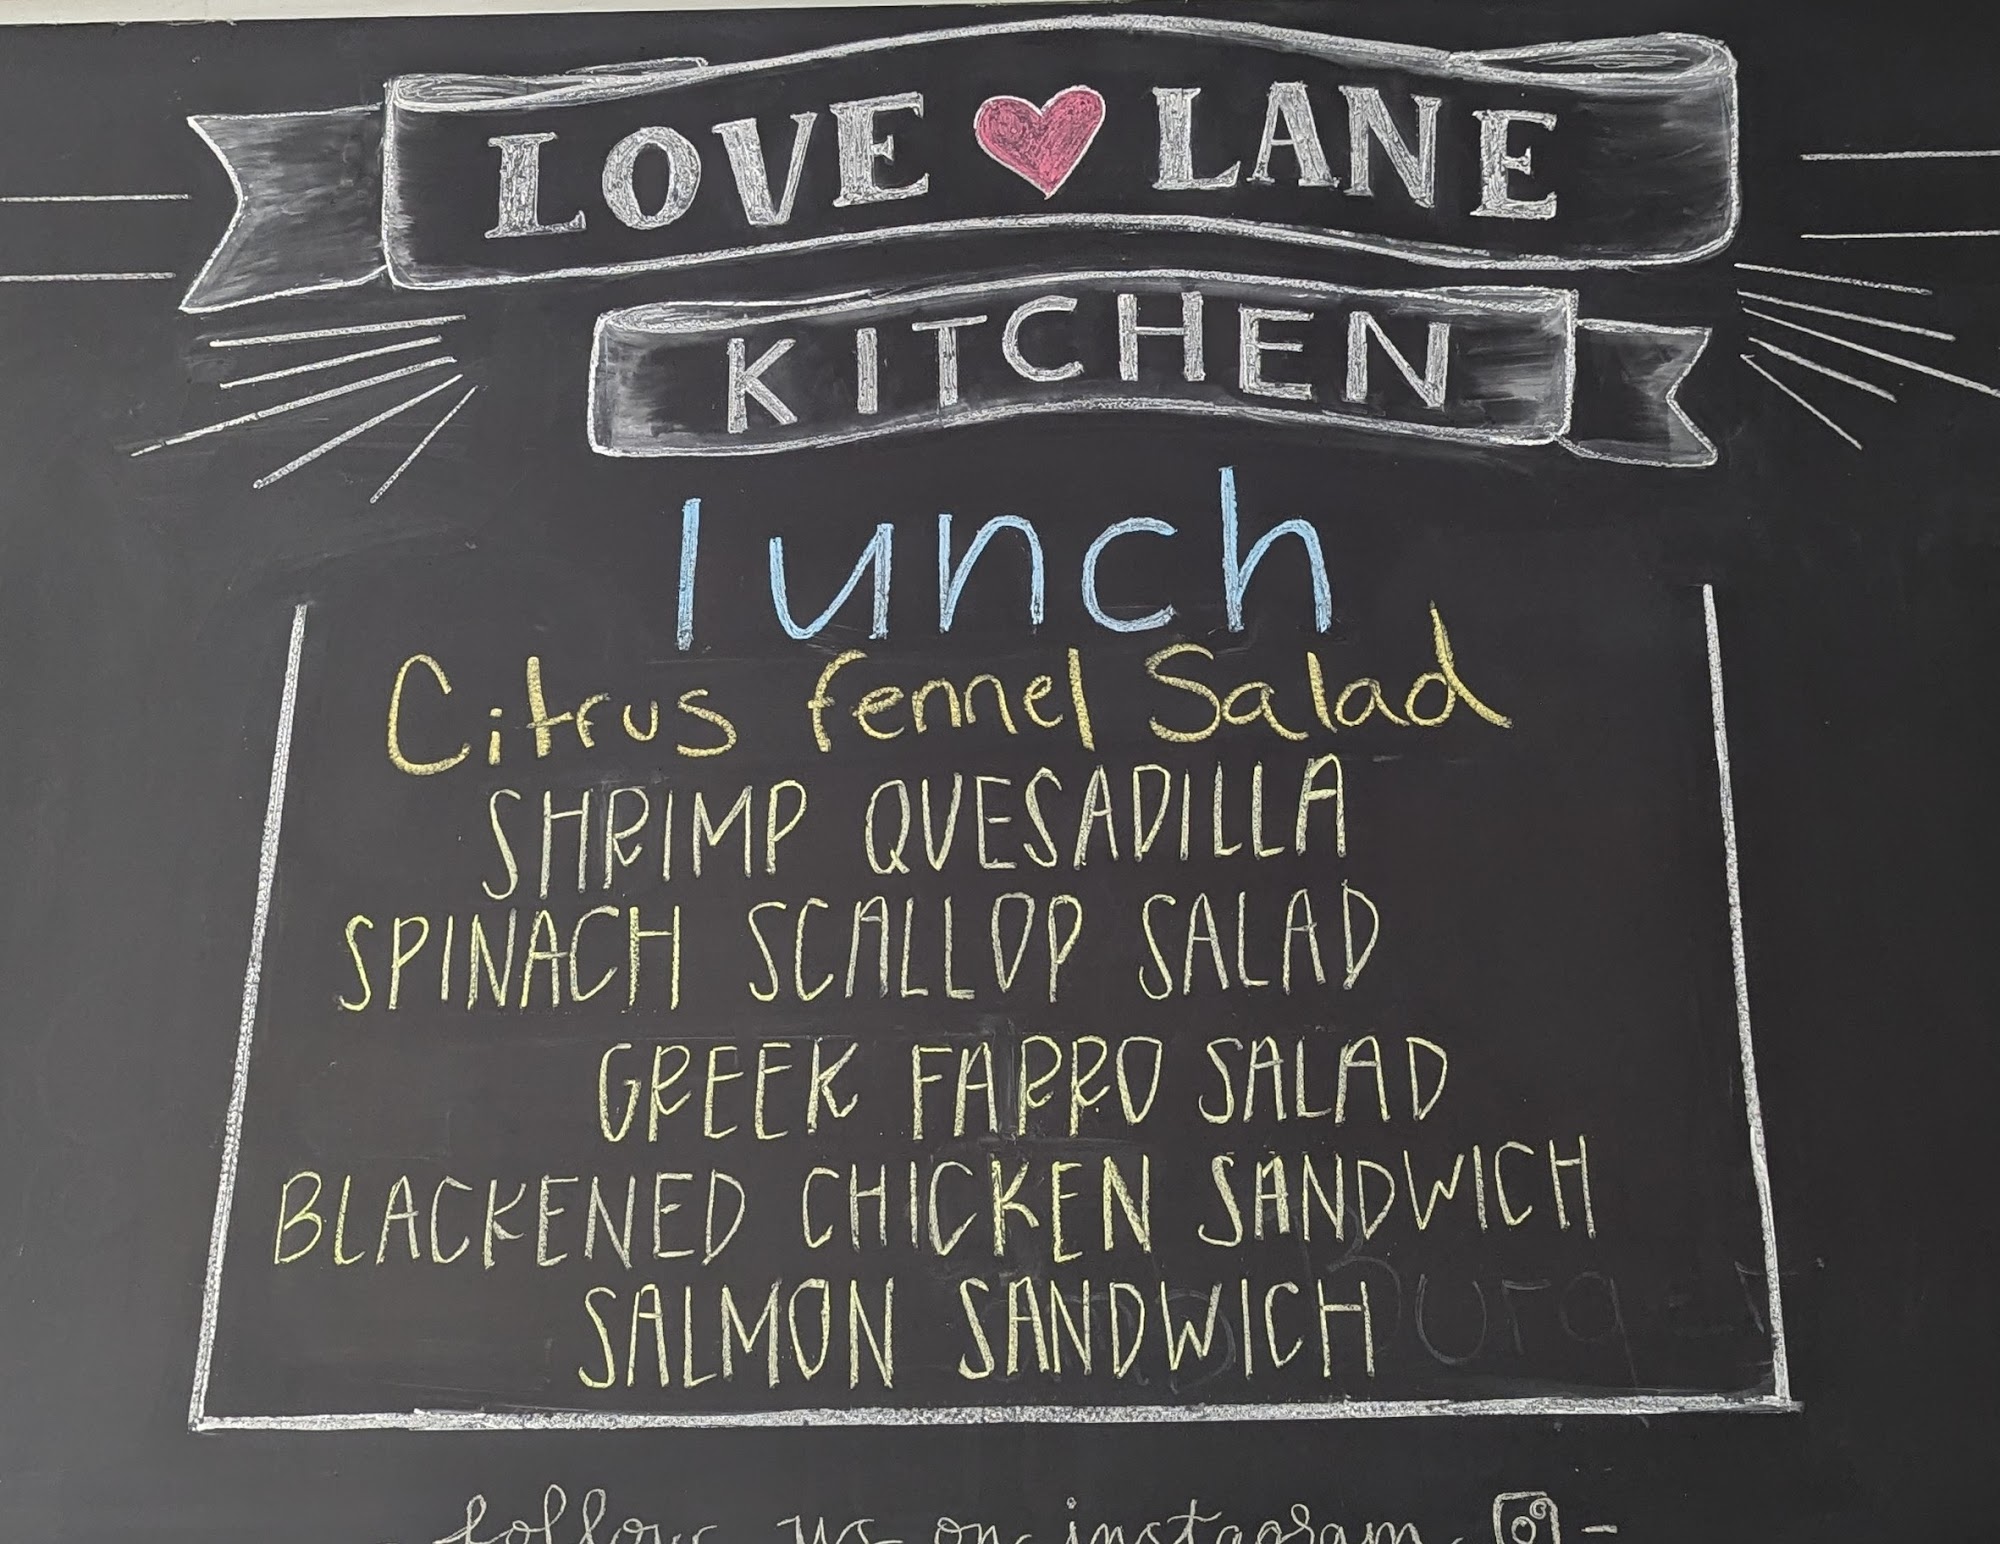 LOVE LANE
KITCHEN
lunch
Citrus fennel Salad
SHRIMP QUESADILLA
SPINACH SCALLOP SALAD
GREEK FARRO SALAD
BLACKENED CHICKEN SANDWICH
SALMON SANDWICH
follow us on instagram -